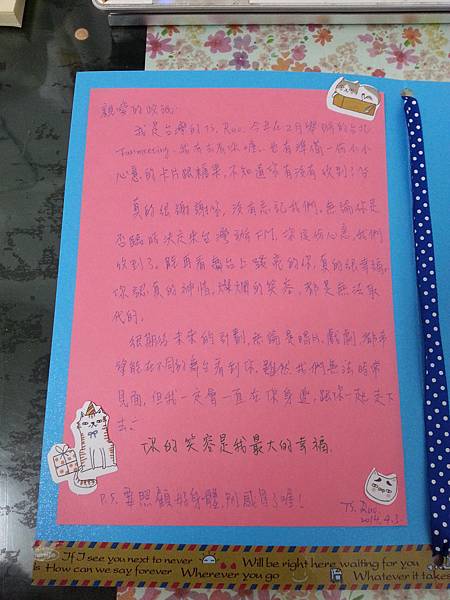 親愛的
我是台灣的 Ts. Ruo. 今年在2月舉辦的台北
Fanmeeting. 我有去看你喔, 也有準備一份小小
心意的卡片跟糖果, 不知道你有沒有收到了
真的很謝謝你, 沒有忘記我們, 無論你是
否臨時決定來台灣辦FM, 你這份心意, 我們
收到了。能再看舞台上發亮的你, 真的很幸福,
你認真的神情, 燦爛的笑容, 都是無法取
代的。
很期待未來的計劃, 無論是唱片, 戲劇, 都希
望能在不同的舞台看到你, 雖然我們無法時常
見面, 但我一定會一直在你身邊, 跟你一起走下
去
你的笑容是我最大的幸福.
P.S. 要照顧好身體, 別感冒了喔!
Ts. Ruo.
2014.4.3.
If I see you next to never Will be right here waiting for you
How can we say forever Wherever you go Whatever it takes